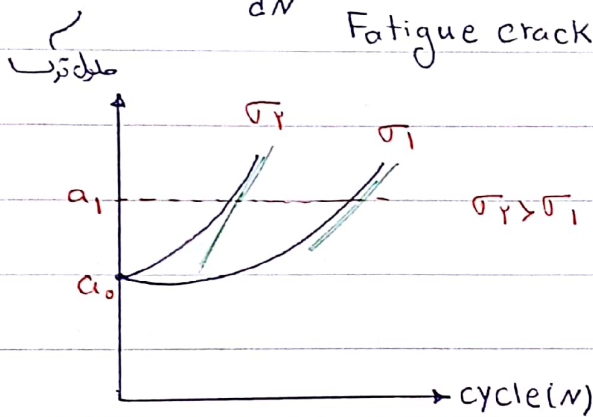 dN
Fatigue crack
طول ترک
σ۲
σ۱
a۱
σ۲ > σ۱
a۰
cycle(N)